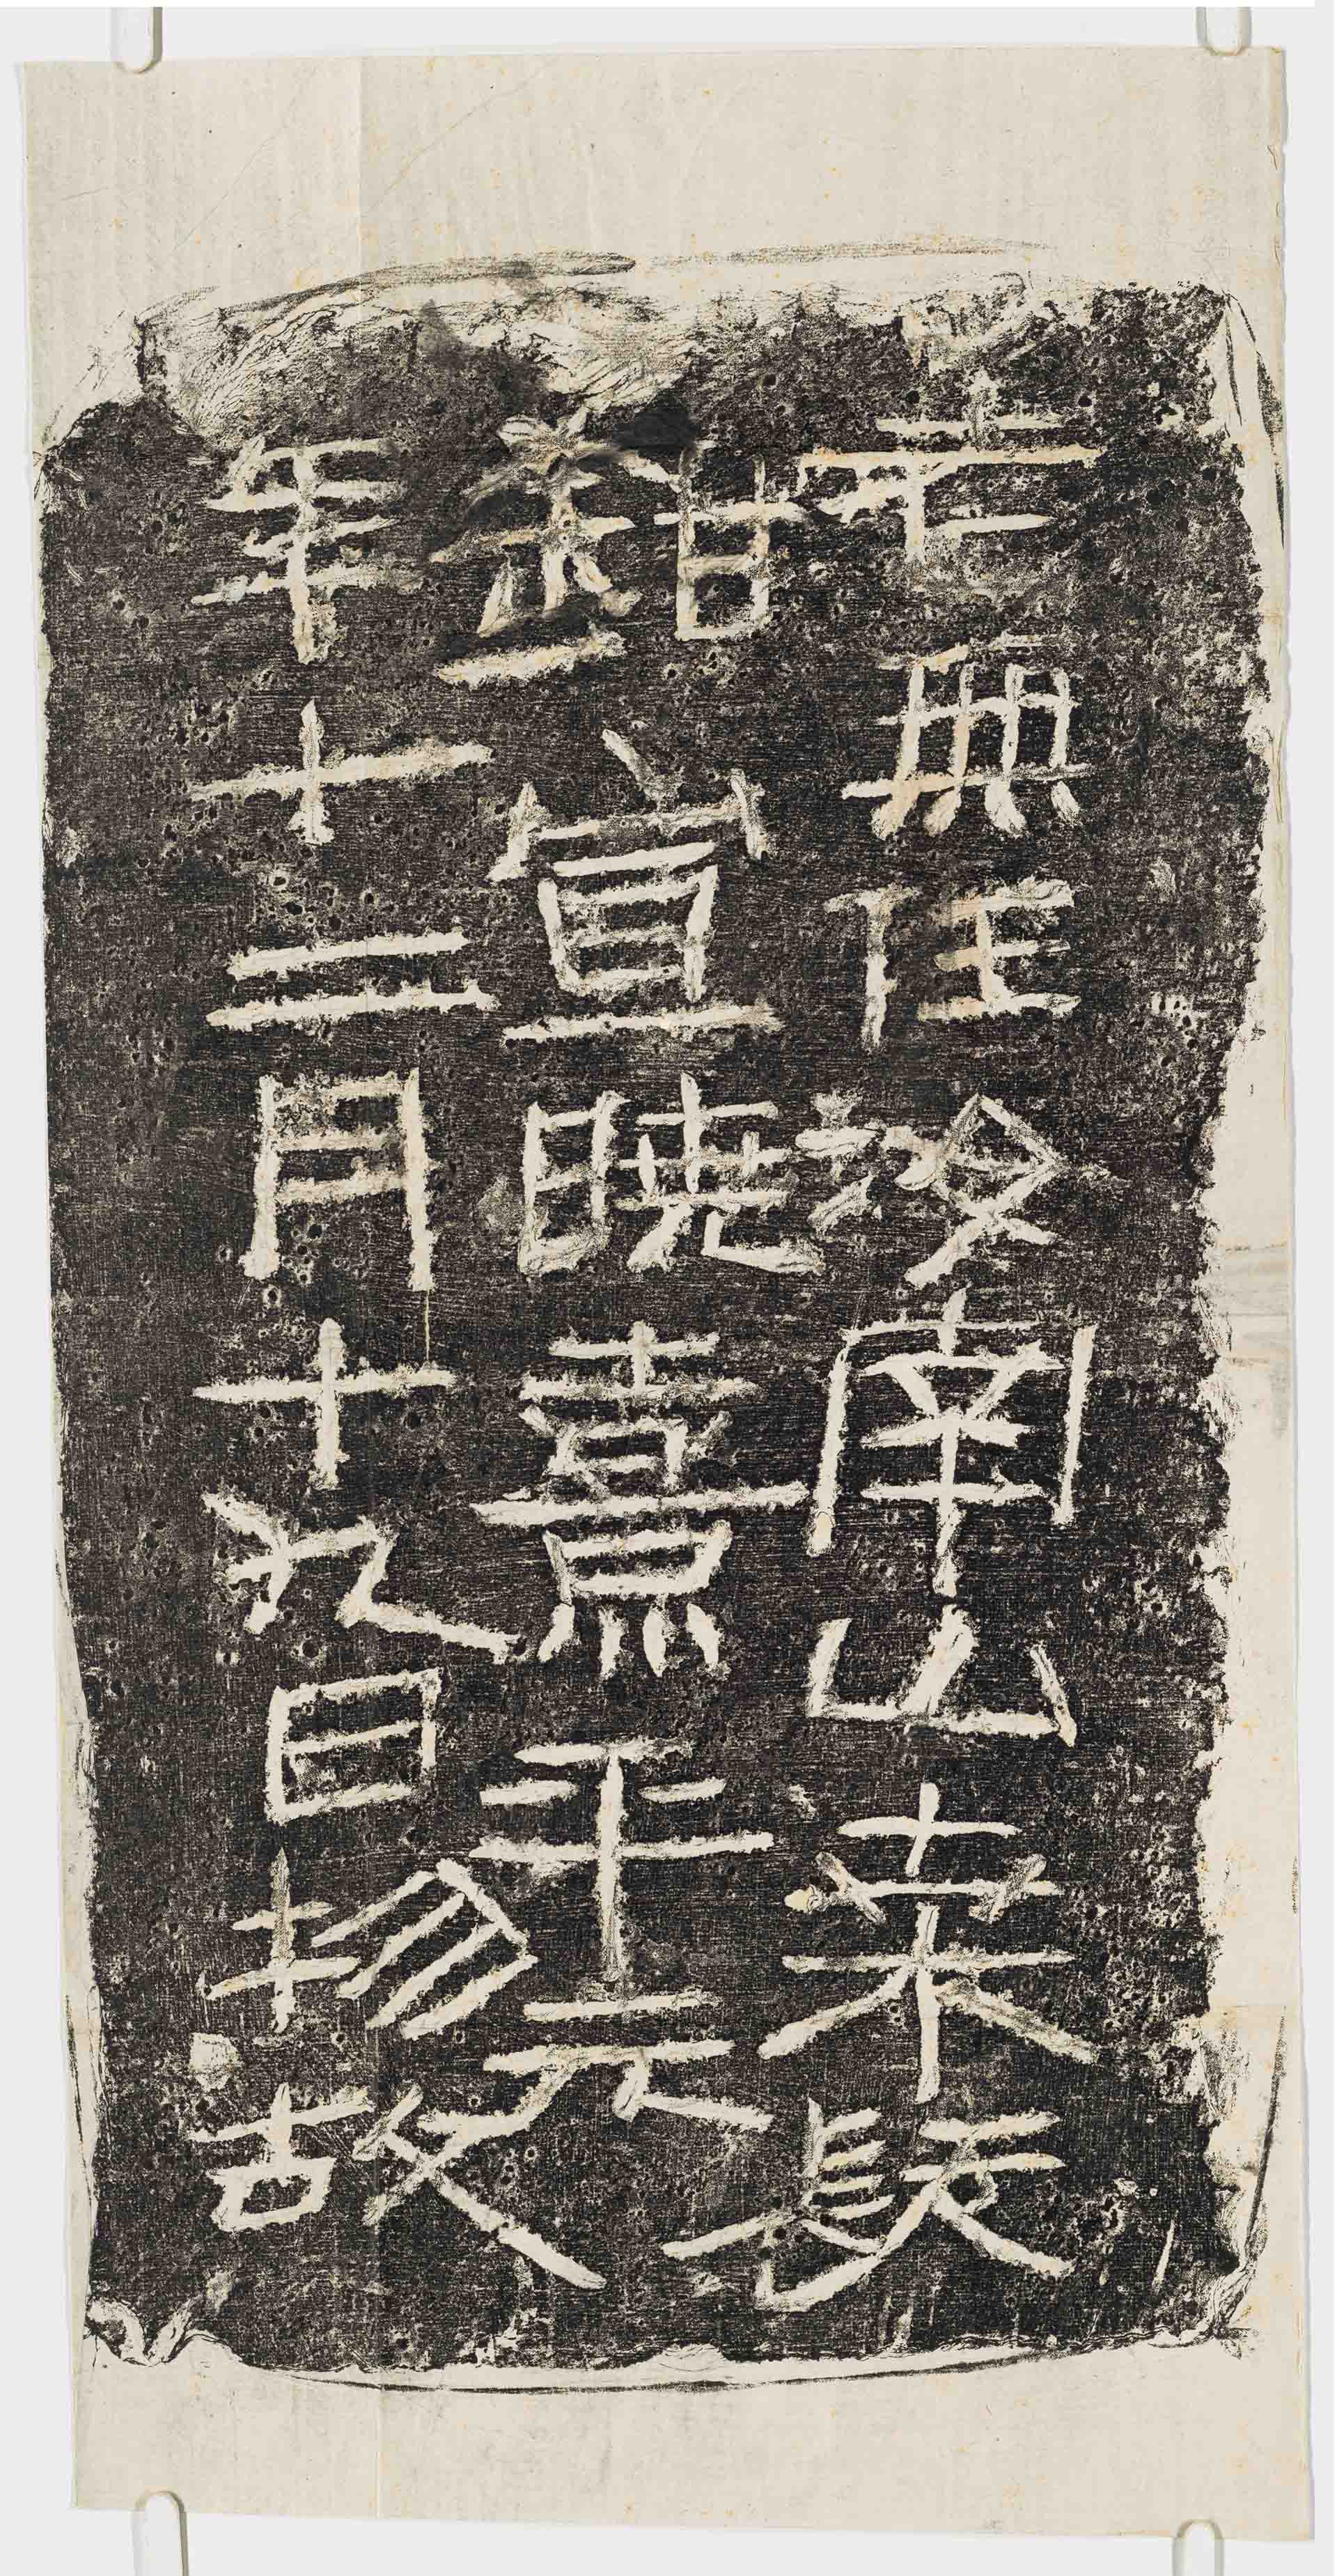 無任汝南山桑髡
鉗宣曉熹平元
年十二月十九日物故